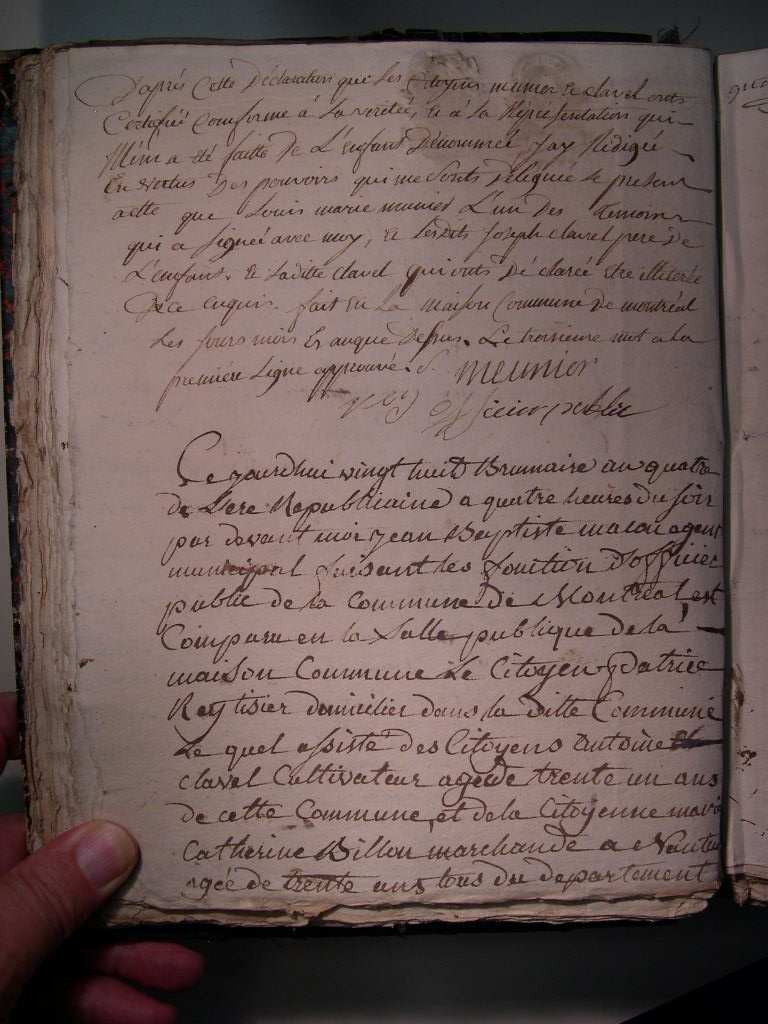 D'après Cette Déclaration que les Citoyens munier & clavel onts
Certifié Comforme a la verité, & a la Représentation qui
M'en a été faitte de L'enfant Dénommeé, Jay Rédigié
En vertus Des pouvoirs qui me sonts déliguée le present
acte que Louis marie munier L'un Des temoins
qui a signeé avec moy, & lesdits Joseph clavel pere de
L'enfant. & laditte clavel qui onts déclaréé être illiterée
De ce enquis. fait en La maison Commune De montréal
Les jours mois & an que Dessus. Le troisieme mot a la
première Ligne approuvé. J. meunier
officier public
Ce jourdhui vingt huit Brumaire an quatre
de Lere Republiaine a quatre heures du soir
par devant moi jean Baptiste macou agent
municipal faisant les fonction d'officier
public de la Commune de Montréal, est
Comparu en la Salle publique de la
maison Commune Le Citoyen patrice
Reytisier domicilier dans la ditte Commune
Le quel assisté des Citoyens Antoine
clavel Cultivateur agée de trente un ans
de cette Commune, et de la Citoyenne marie
Catherine Billou marchande a Nantua
agée de trente ans tous du departement